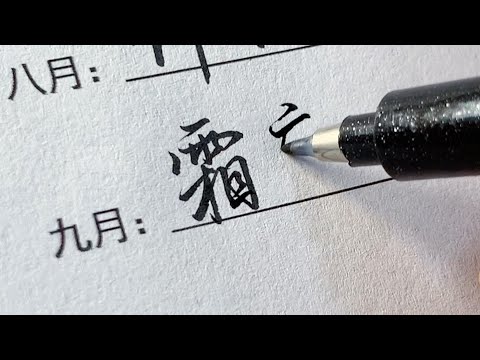 八月：
九月：霜